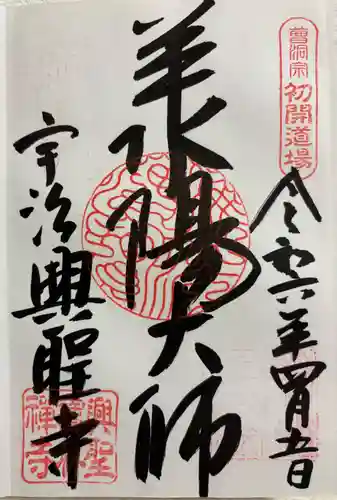 曹洞宗
初開道場
令和六年四月五日
承陽大師
宇治興聖寺
興聖
寶林
禅寺